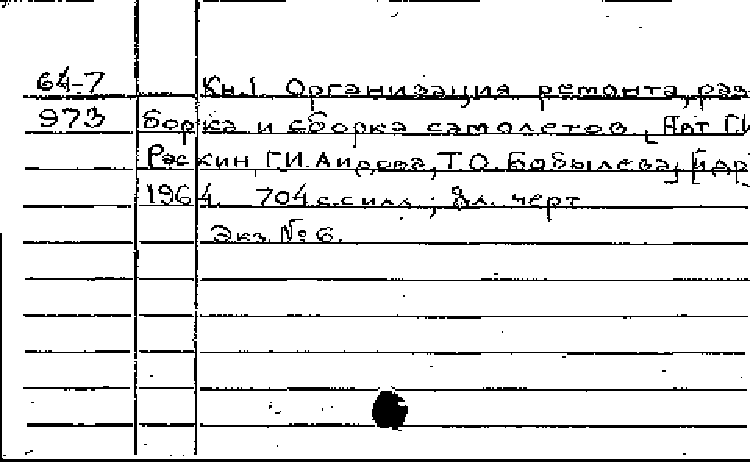 64-7 Кн.1. Организация ремонта, раз
973 борка и сборка самолетов. [Авт Г.И.
Раскин, Г.И. Т.О. Бобылева, и др]
1964. 704 с. с илл.; 8л. черт
Экз. № 6.